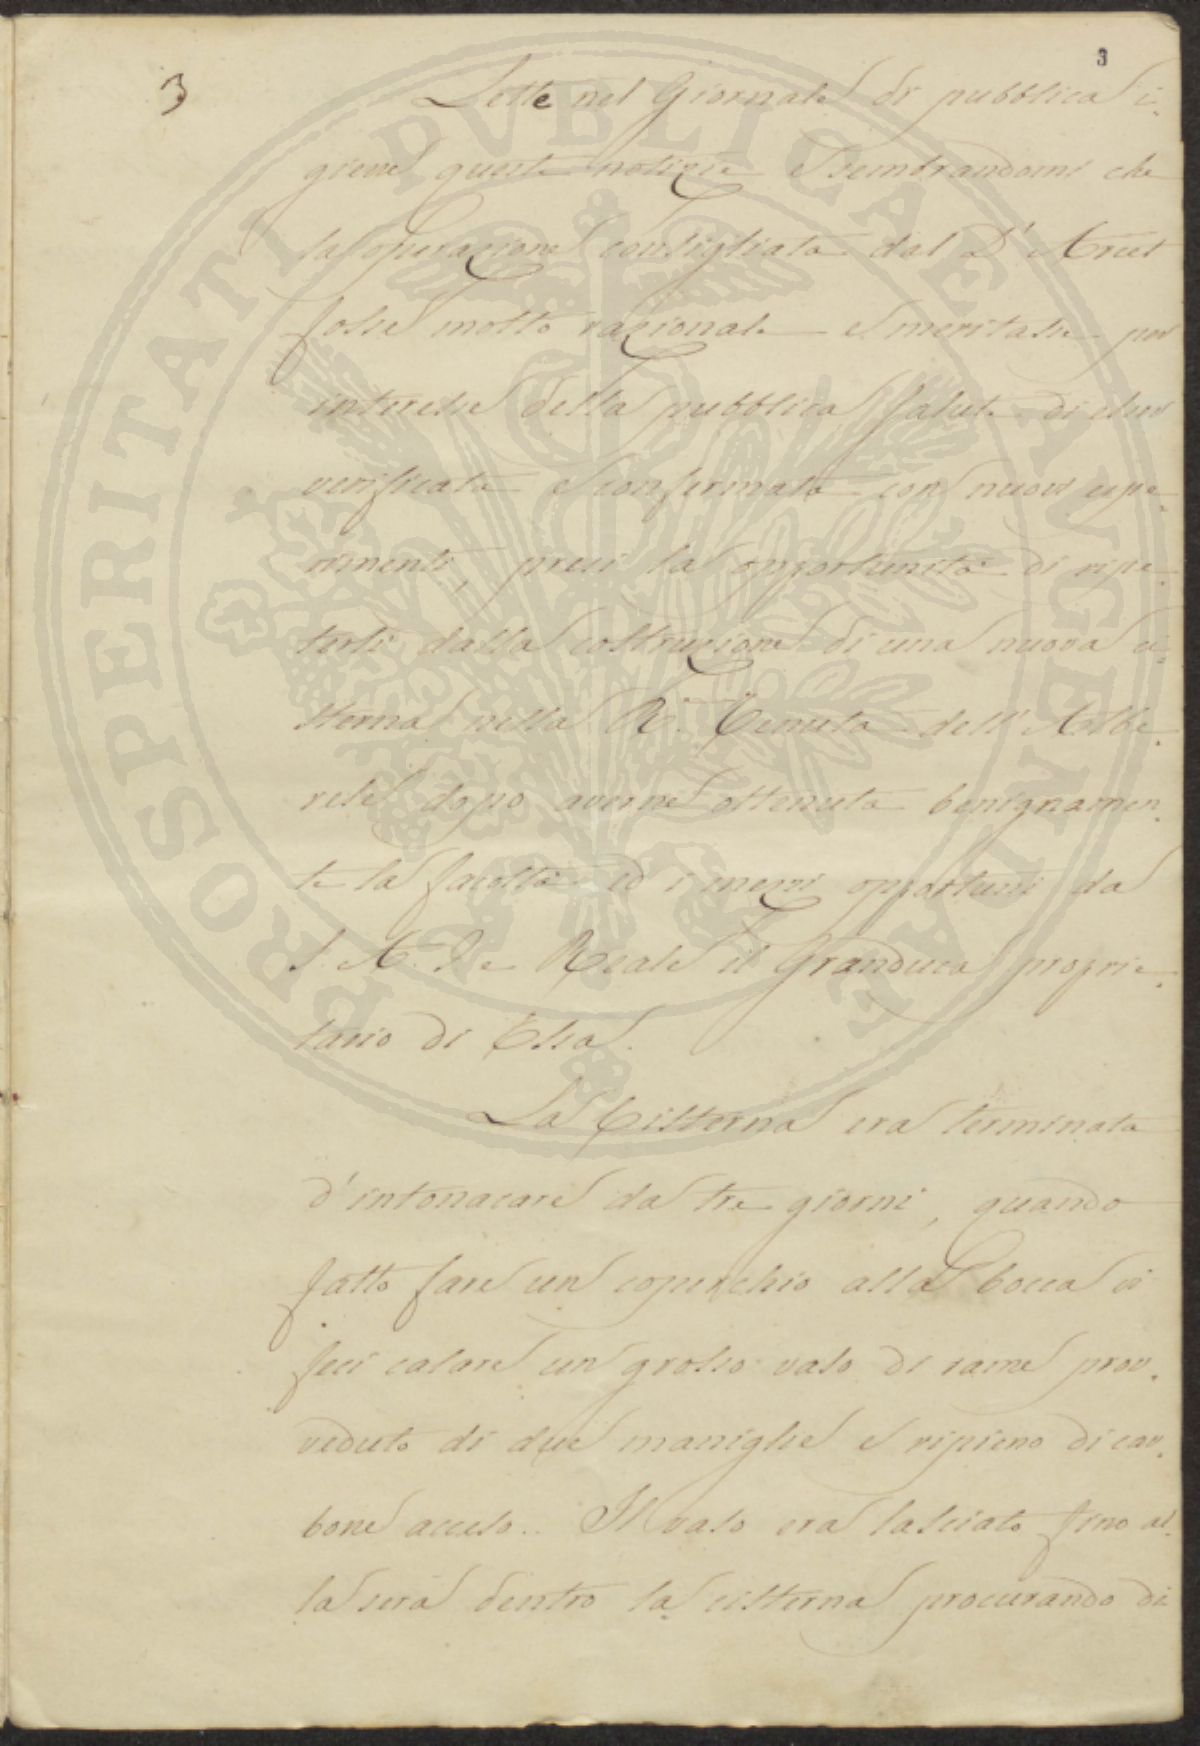 3
3
Lette nel Giornale di pubblica i-
giene queste notizie e sembrandomi che
la operazione consigliata dal D'Arcet
fosse molto razionale e meritasse per
interesse della pubblica salute di esser
verificata e confermata con nuovi espe-
rimenti, presi la opportunità di ripe-
terli dalla costruzione di una nuova ci-
sterna nella R. Tenuta dell'Albe-
rese dopo averne ottenuta benignamen-
te la facoltà ed i mezzi opportuni da
S. A. I. e Reale il Granduca proprie-
tario di Essa.
La Cisterna era terminata
d'intonacare da tre giorni, quando
fatto fare un coperchio alla bocca vi
feci calare un grosso vaso di rame prov-
veduto di due maniglie e ripieno di car-
bone acceso. Il vaso era lasciato fino al-
la sera dentro la cisterna procurando di
PROSPERITATI PVBLICAE AVGENDAE